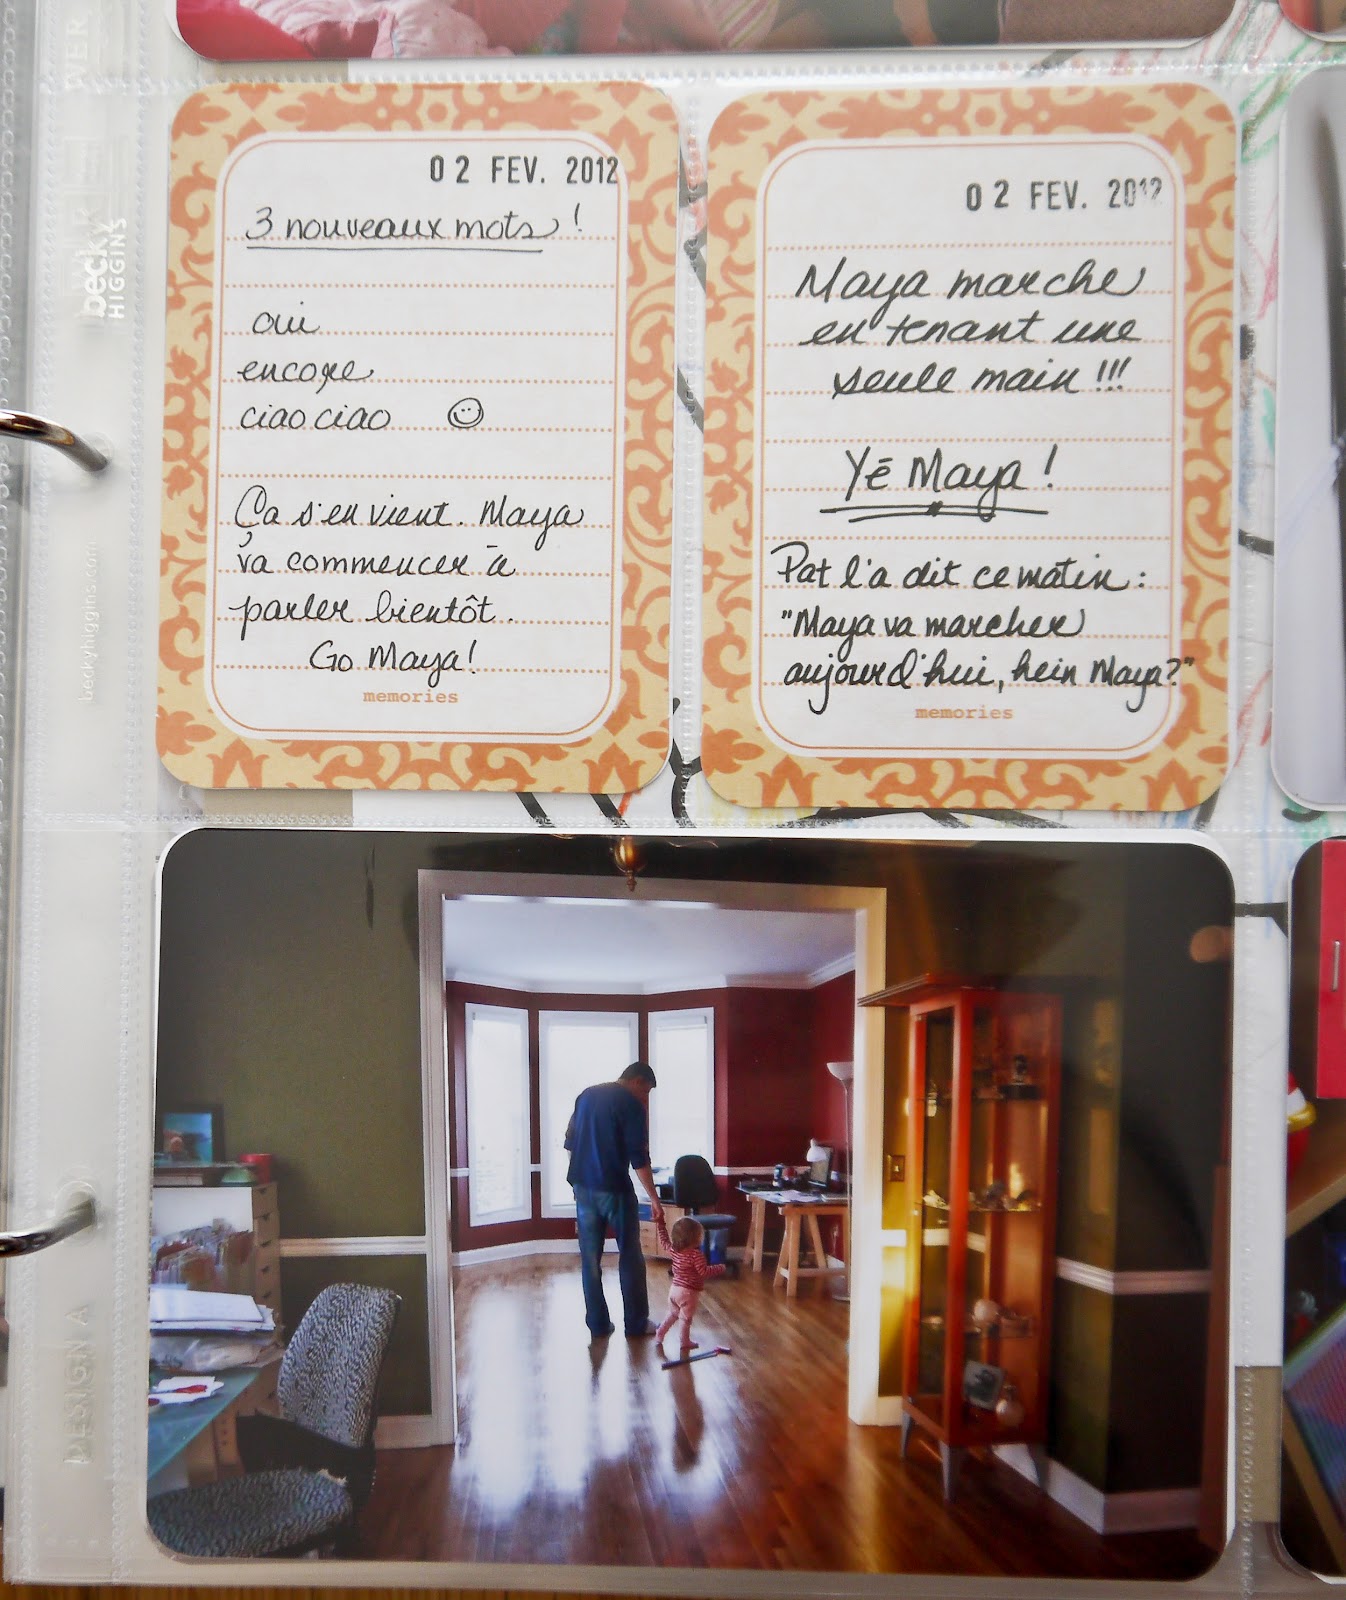 02 FEV. 2012
3 nouveaux mots !
oui
encore
ciao ciao
Ça s'en vient. Maya
va commencer à
parler bientôt.
Go Maya!
memories
02 FEV. 2012
Maya marche
en tenant une
seule main !!!
Yé Maya !
Pat l'a dit ce matin :
"Maya va marcher
aujourd'hui, hein Maya?"
memories
becky
HIGGINS
beckyhiggins.com
DESIGN A